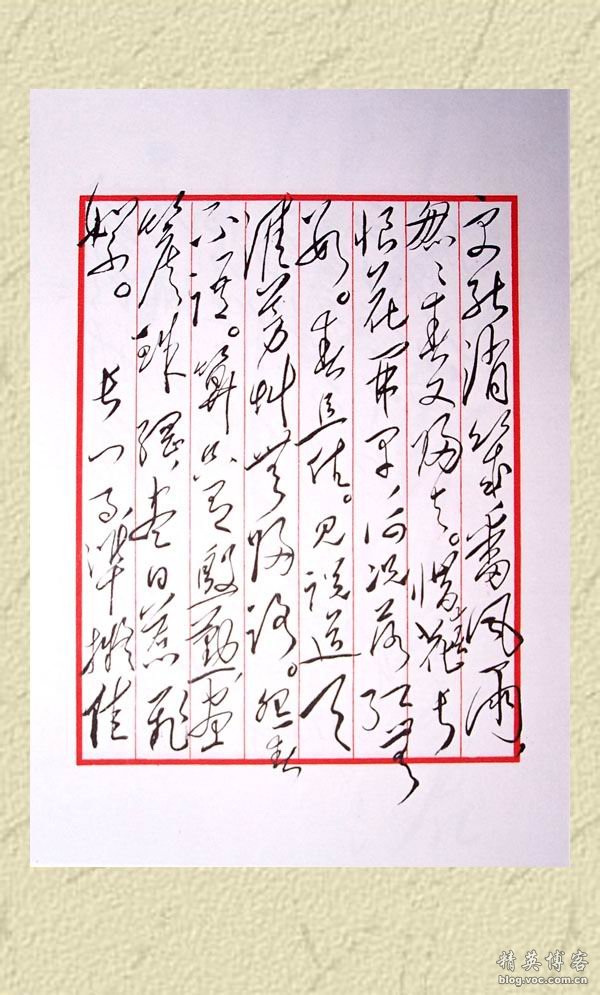 更能消几番风雨，
匆匆春又归去。惜春长
恨花开早，何况落红无
数。春且住。见说道天
涯芳草无归路。怨春
不语。算只有殷勤画
檐蛛网，尽日惹飞
絮。长门事准拟佳
精英博客
blog.voc.com.cn